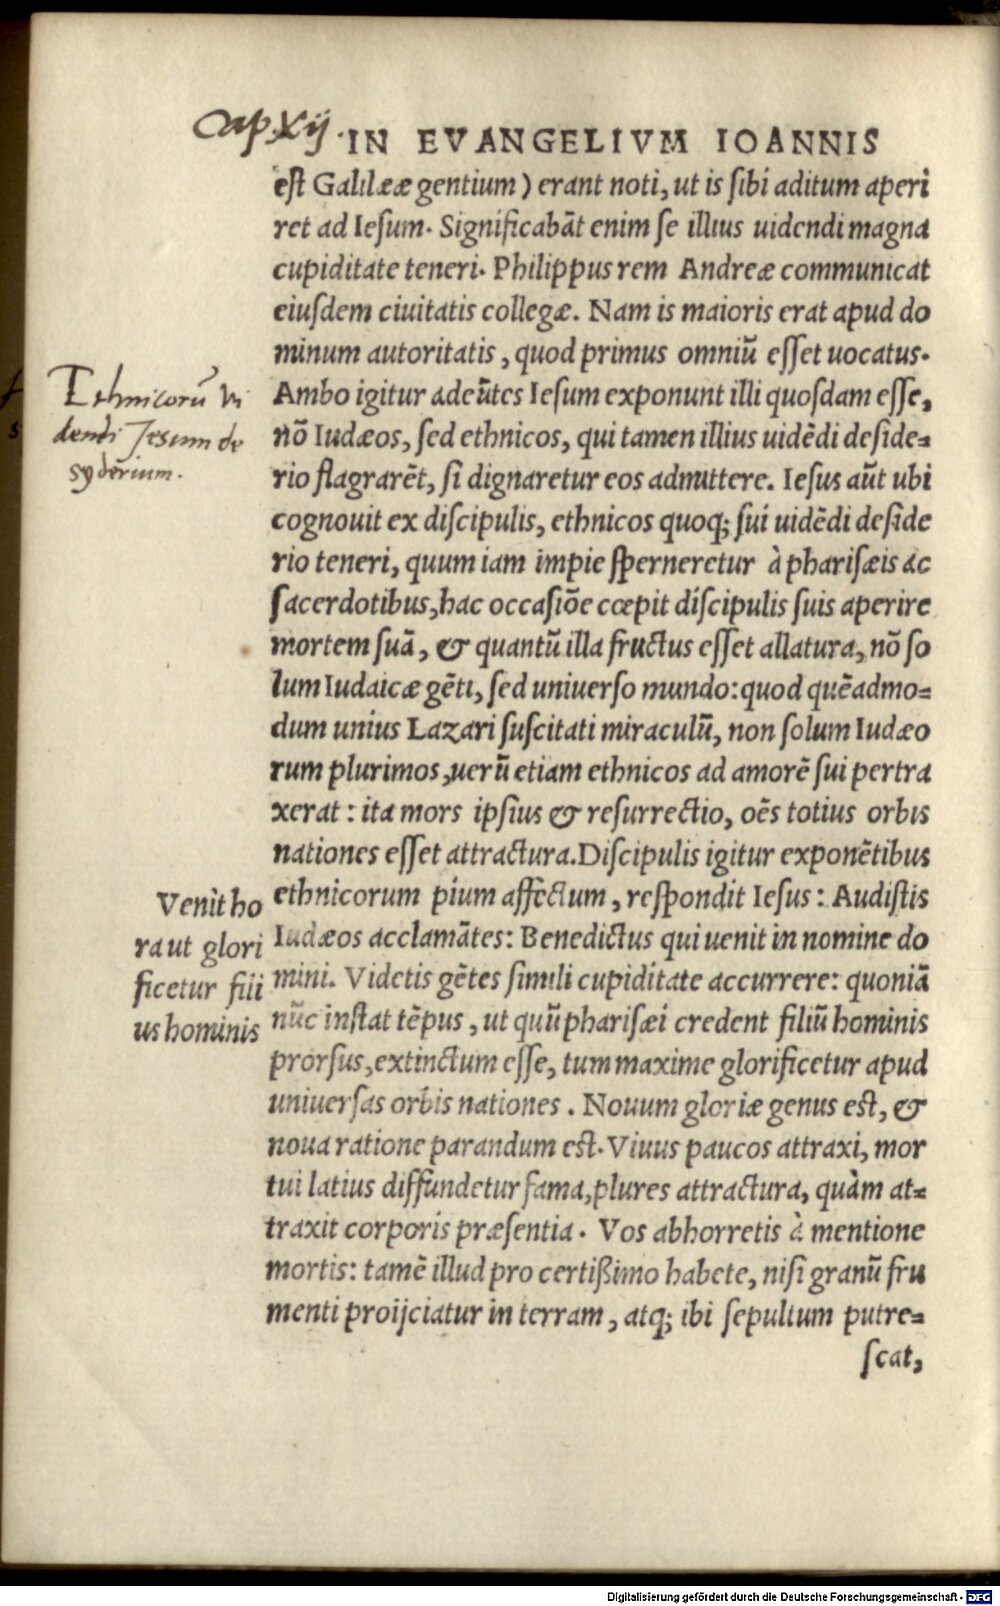 Cap. Xij.
IN EVANGELIVM IOANNIS
est Galilææ gentium) erant noti, ut is sibi aditum aperi
ret ad Iesum. Significabãt enim se illius uidendi magna
cupiditate teneri. Philippus rem Andreæ communicat
eiusdem ciuitatis collegæ. Nam is maioris erat apud do
minum autoritatis, quod primus omniũ esset uocatus.
Ambo igitur adeũtes Iesum exponunt illi quosdam esse,
nõ Iudæos, sed ethnicos, qui tamen illius uidẽdi deside=
rio flagrarẽt, si dignaretur eos admittere. Iesus aũt ubi
cognouit ex discipulis, ethnicos quoq; sui uidẽdi deside
rio teneri, quum iam impie sperneretur à pharisæis ac
sacerdotibus, hac occasiõe cœpit discipulis suis aperire
mortem suã, & quantũ illa fructus esset allatura, nõ so
lum Iudaicæ gẽti, sed uniuerso mundo: quod quẽadmo=
dum unius Lazari suscitati miraculũ, non solum Iudæo
rum plurimos, uerũ etiam ethnicos ad amorẽ sui pertra
xerat: ita mors ipsius & resurrectio, oẽs totius orbis
nationes esset attractura. Discipulis igitur exponẽtibus
ethnicorum pium affectum, respondit Iesus: Audistis
Iudæos acclamãtes: Benedictus qui uenit in nomine do
mini. Videtis gẽtes simili cupiditate accurrere: quoniã
nũc instat tẽpus, ut quũ pharisæi credent filiũ hominis
prorsus, extinctum esse, tum maxime glorificetur apud
uniuersas orbis nationes. Nouum gloriæ genus est, &
noua ratione parandum est. Viuus paucos attraxi, mor
tui latius diffundetur fama, plures attractura, quàm at=
traxit corporis præsentia. Vos abhorretis à mentione
mortis: tamẽ illud pro certißimo habete, nisi granũ fru
menti proijciatur in terram, atq; ibi sepultum putre=
scat,
Ethnicorũ vi
dendi Jesum de
syderium.
Venit ho
ra ut glori
ficetur fili
us hominis
Digitalisierung gefördert durch die Deutsche Forschungsgemeinschaft - DFG